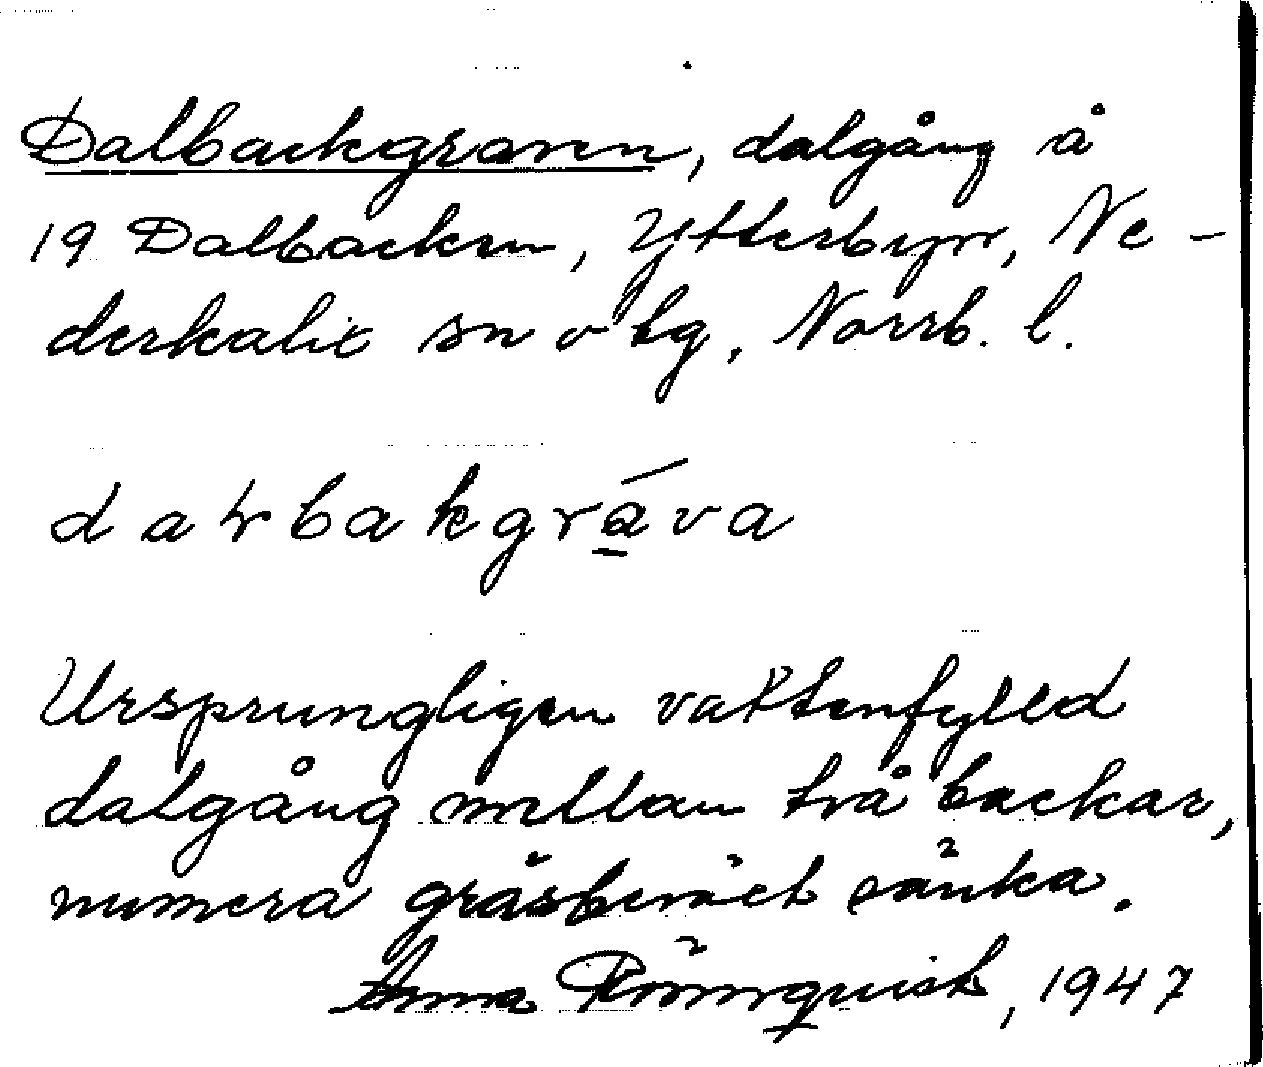 Dalbackgraven, dalgång å
19 Dalbacken, Ytterbyn, Ne-
derkalix sn o tg, Norrb. l.
daɽbakgráva
Ursprungligen vattenfylld
dalgång mellan två backar,
numera gräsbeväxt sänka.
Anna Rönnquist, 1947